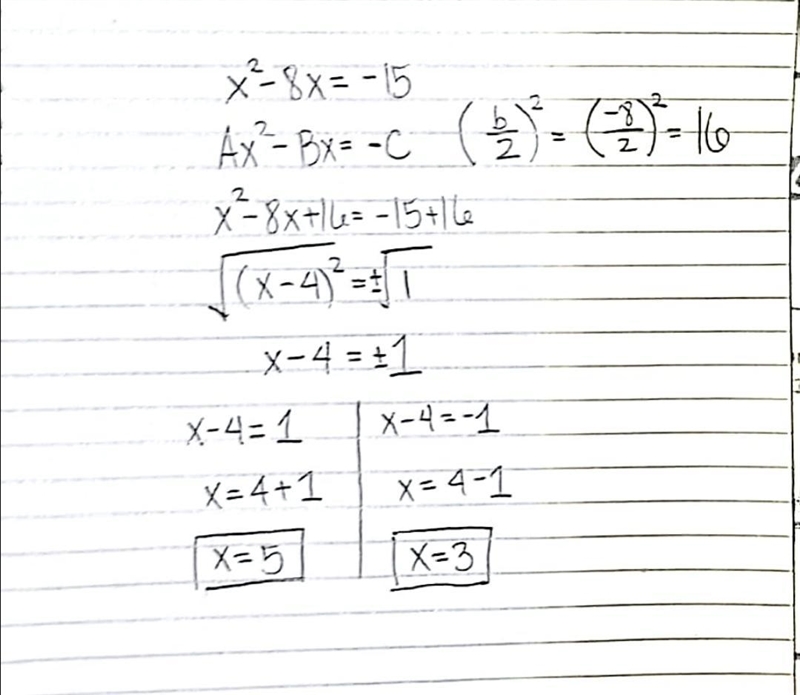 x²-8x=-15
Ax²-Bx=-C (b/2)²=(-8/2)²=16
x²-8x+16=-15+16
√(x-4)²=±√1
x-4=±1
x-4=1 x-4=-1
x=4+1 x=4-1
x=5 x=3